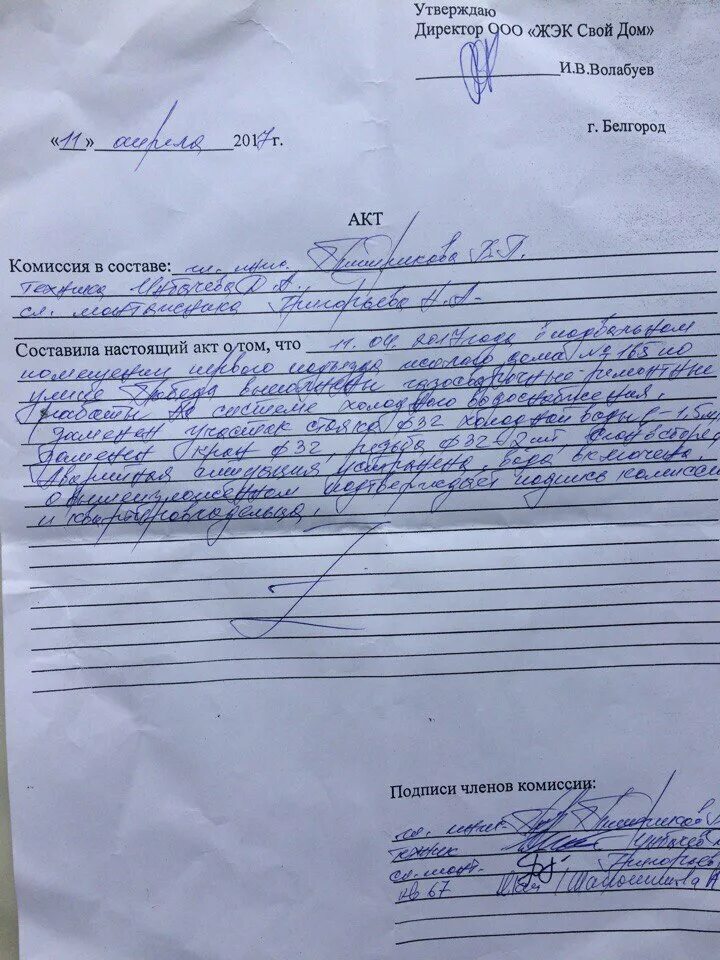 Утверждаю
Директор ООО «ЖЭК Свой Дом»
И.В.Волабуев
«11» апреля 2017 г.
г. Белгород
АКТ
Комиссия в составе: гл. инж. В.П.
техника Д.А.
сл. монтажника Григорьева Н.А.
Составила настоящий акт о том, что 11.04.2017 года в подвальном
помещении первого подъезда жилого дома № 165 по
улице Победа выполнены газосварочные-ремонтные
работы на системе холодного водоснабжения.
Заменен участок стояка ф32 холодной воды l-1,5м,
заменен кран ф32, резьба ф32-2шт,
Аварийная ситуация устранена, вода включена.
О вышеизложенном подтверждает подпись комиссии
и квартировладельца.
Подписи членов комиссии:
гл. инж.
техник
сл. монт.
кв 67